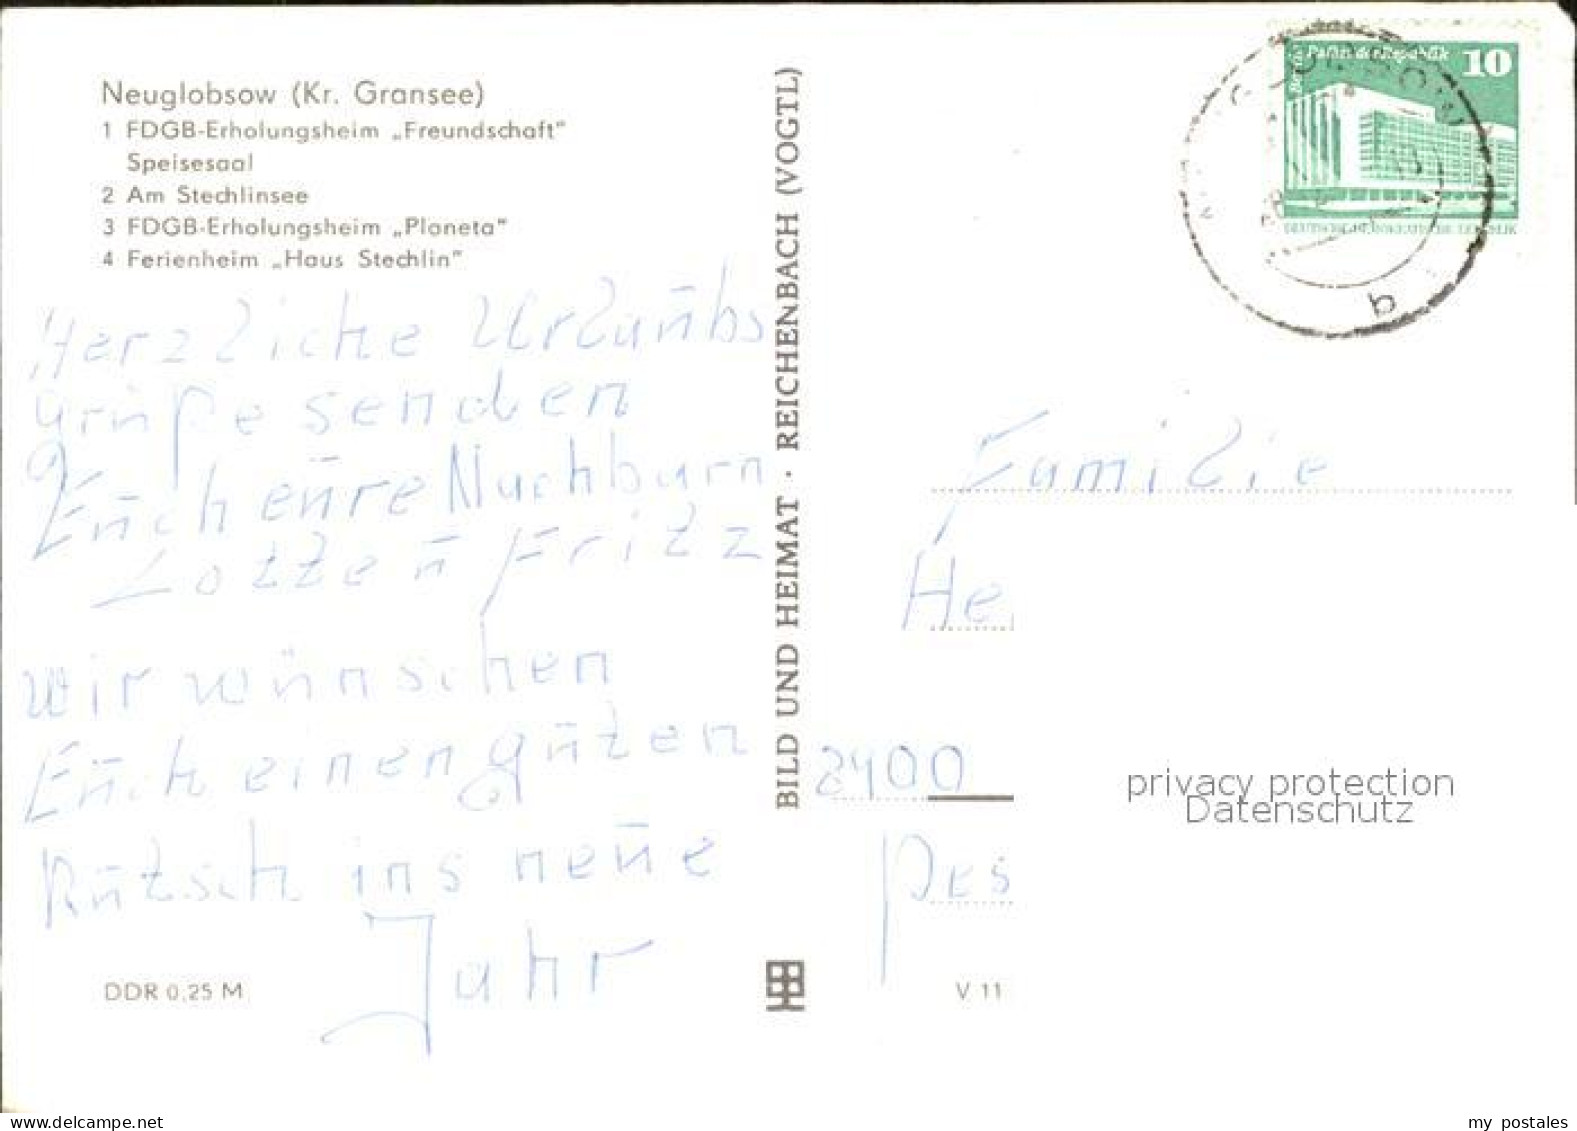 Neuglobsow (Kr. Gransee)
1 FDGB-Erholungsheim „Freundschaft"
Speisesaal
2 Am Stechlinsee
3 FDGB-Erholungsheim „Planeta"
4 Ferienheim „Haus Stechlin"
Herzliche Urlaubs
grüße senden
Euch eure Nachbarn
Lotte u Fritz
Wir wünschen
Euch einen guten
Rutsch ins neue
Jahr
DDR 0,25 M
BILD UND HEIMAT · REICHENBACH (VOGTL)
Berlin Palast der Republik 10
DEUTSCHE DEMOKRATISCHE REPUBLIK
b
Familie
He
8400
privacy protection
Datenschutz
V 11
my postales
delcampe.net